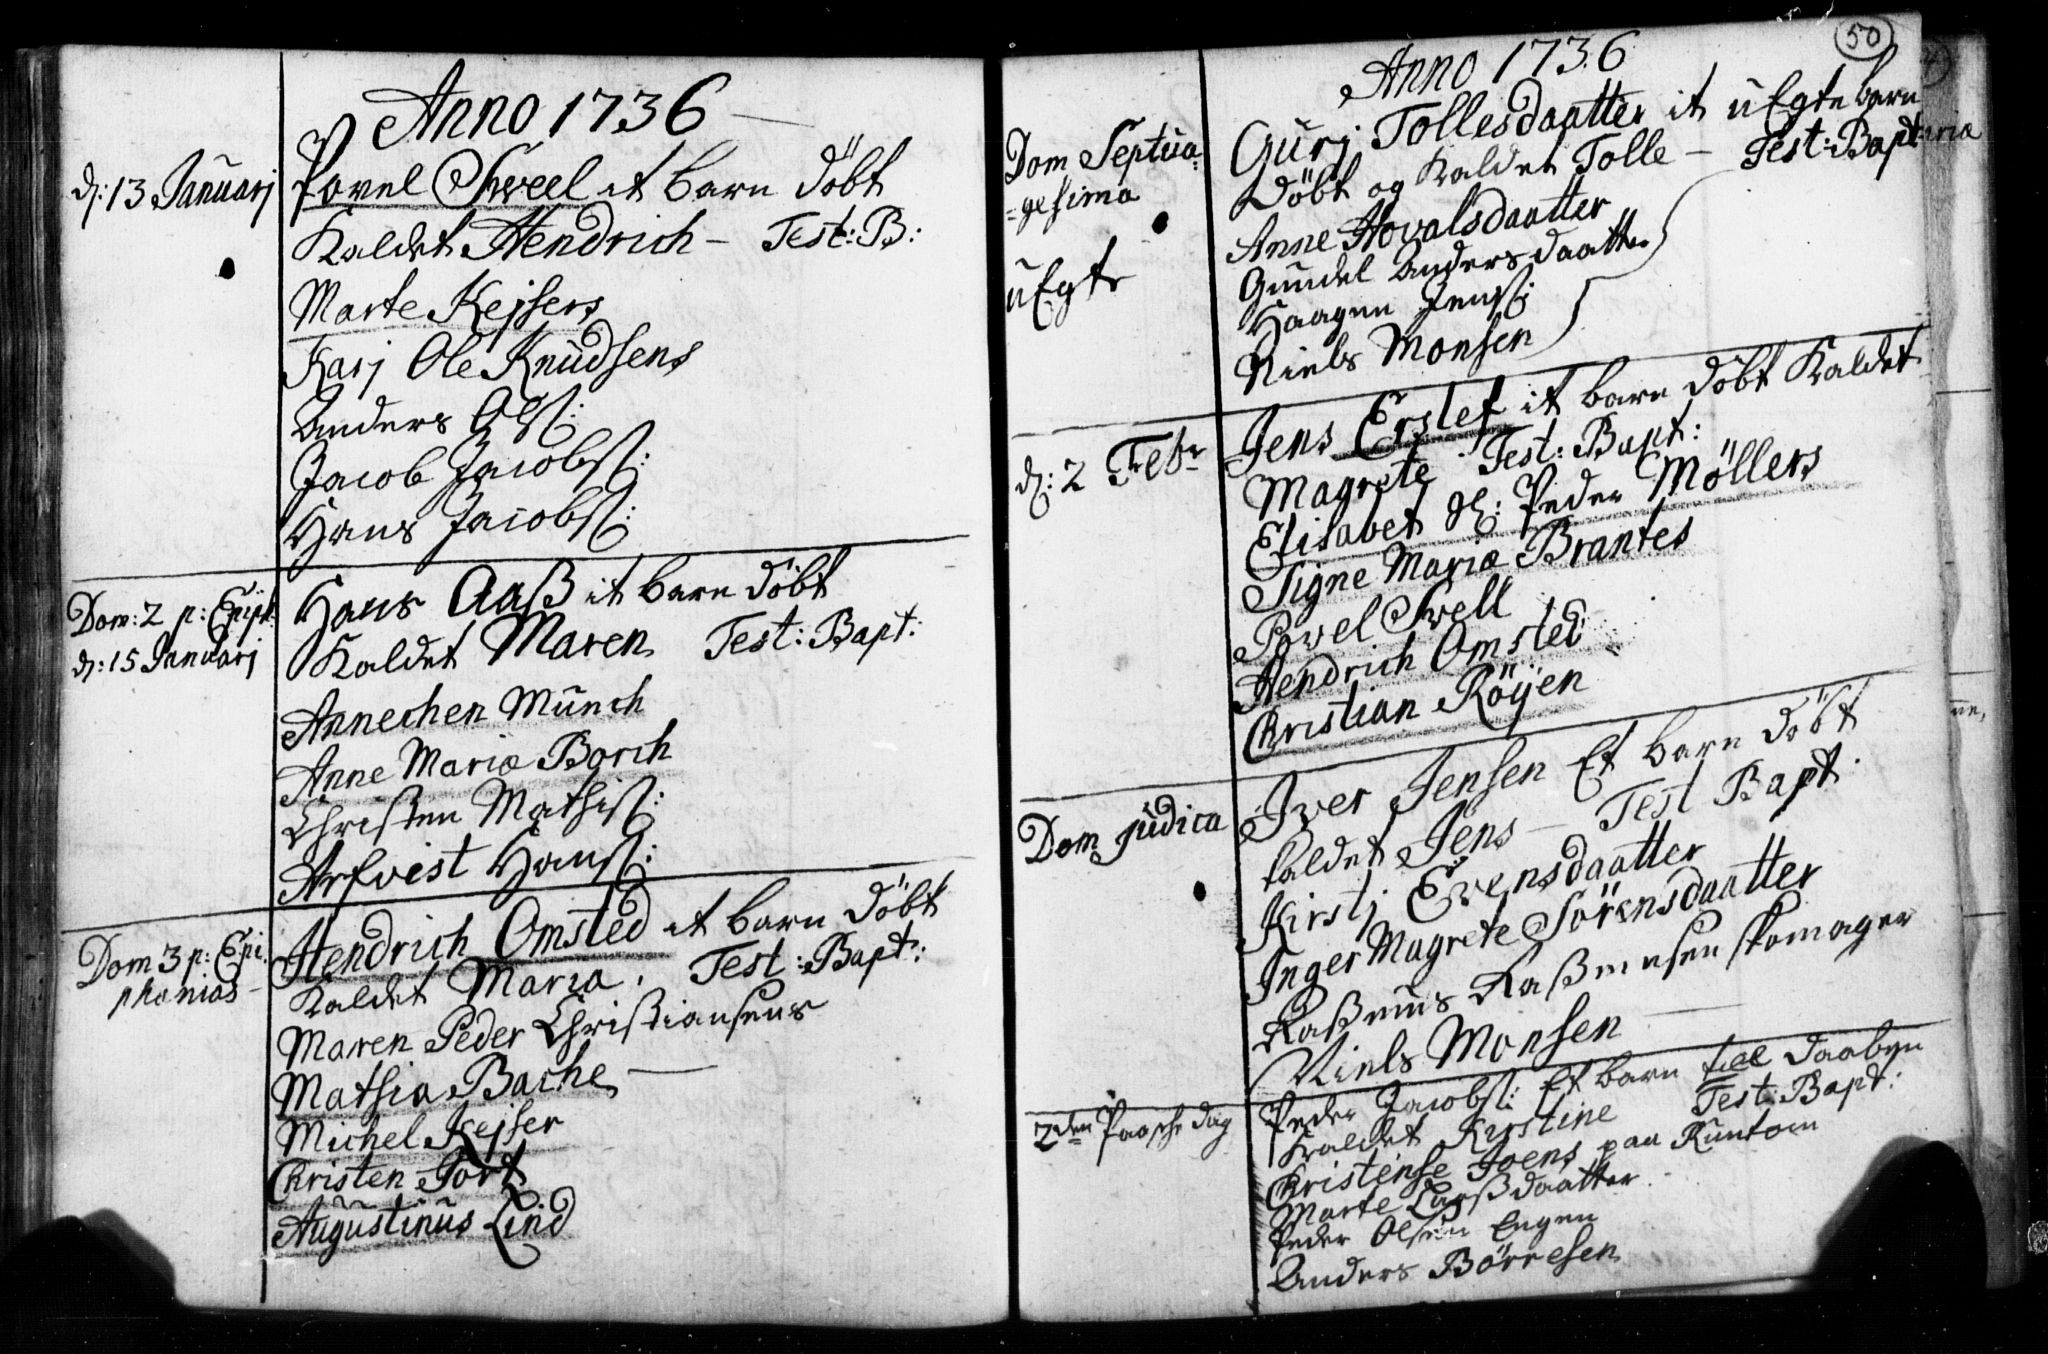 Anno 1736
d: 13 Januarj
Povel Sveel et barn döbt
Kaldet Hendrich - Test: B:
Marte Kejsers
Karj Ole Knudsens
Anders Olss:
Jacob Jacobss:
Hans Jacobss:
Dom: 2 p: Epiph:
d: 15 Januarj
Hans Aaß et barn döbt
Kaldet Maren Test: Bapt:
Annechen Münch
Anne Maria Borch
Christen Mathiss:
Arfvest Hanss:
Dom 3 p: Epi-
phanias
Hendrich Omsted et barn döbt
Kaldet Maria. Test: Bapt:
Maren Peder Christiansens
Mathia Bache
Michel Kejser
Christen Fort
Augustinus Lind
50
Anno 1736
Dom Septua-
=gesima
uEgte
Gurj Tollesdaatter it uEgte barn
Döbt og Kaldet Tolle - Test: Bapt:
Anne Hovalsdaatter
Gundel Andersdaatter
Haagen Jenss:
Niels Monsen
d: 2 Febr
Jens Erslef it barn döbt Kaldet
Magrete Test: Bapt:
Elisabet Sl: Peder Möllers
Signe Maria Brantes
Povel Svell
Hendrich Omsted
Christian Röyen
Dom Judica
Iver Jensen Et barn döbt
kaldet Jens - Test Bapt:
Kirstj Evensdaatter
Inger Magrete Sörensdaatter
Raßmus Raßmusen skomager
Niels Monsen
2den Paasche dag
Peder Jacobss: Et barn till daaben
Kaldet Kirstine Test: Bapt:
Christense Joens paa Runtom
Marte Larßdaatter
Peder Olsen Engen
Anders Börresen